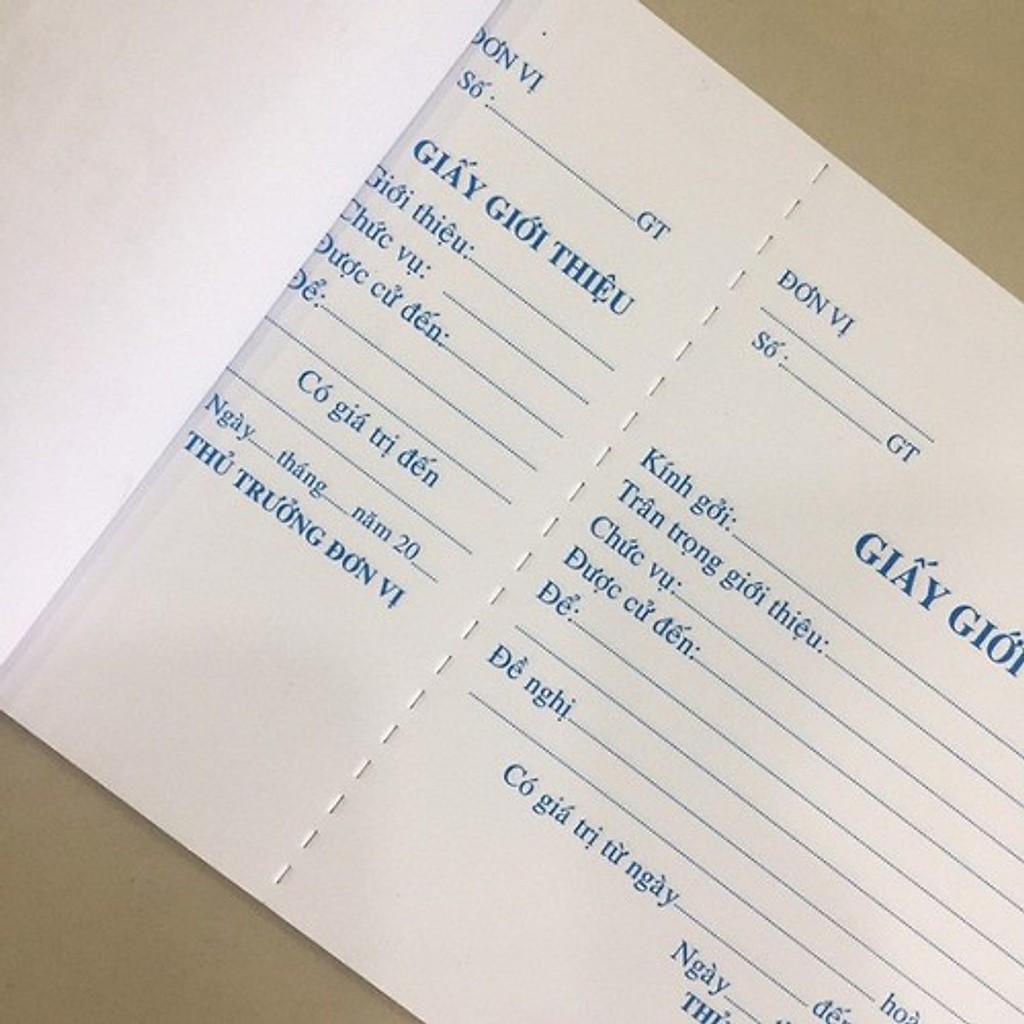 ĐƠN VỊ
Số :____GT
GIẤY GIỚI THIỆU
Giới thiệu:
Chức vụ:
Được cử đến:
Để:
Có giá trị đến
Ngày___tháng___năm 20___
THỦ TRƯỞNG ĐƠN VỊ
ĐƠN VỊ
Số :____GT
GIẤY GIỚI
Kính gởi:
Trân trọng giới thiệu:
Chức vụ:
Được cử đến:
Để:
Đề nghị
Có giá trị từ ngày
Ngày